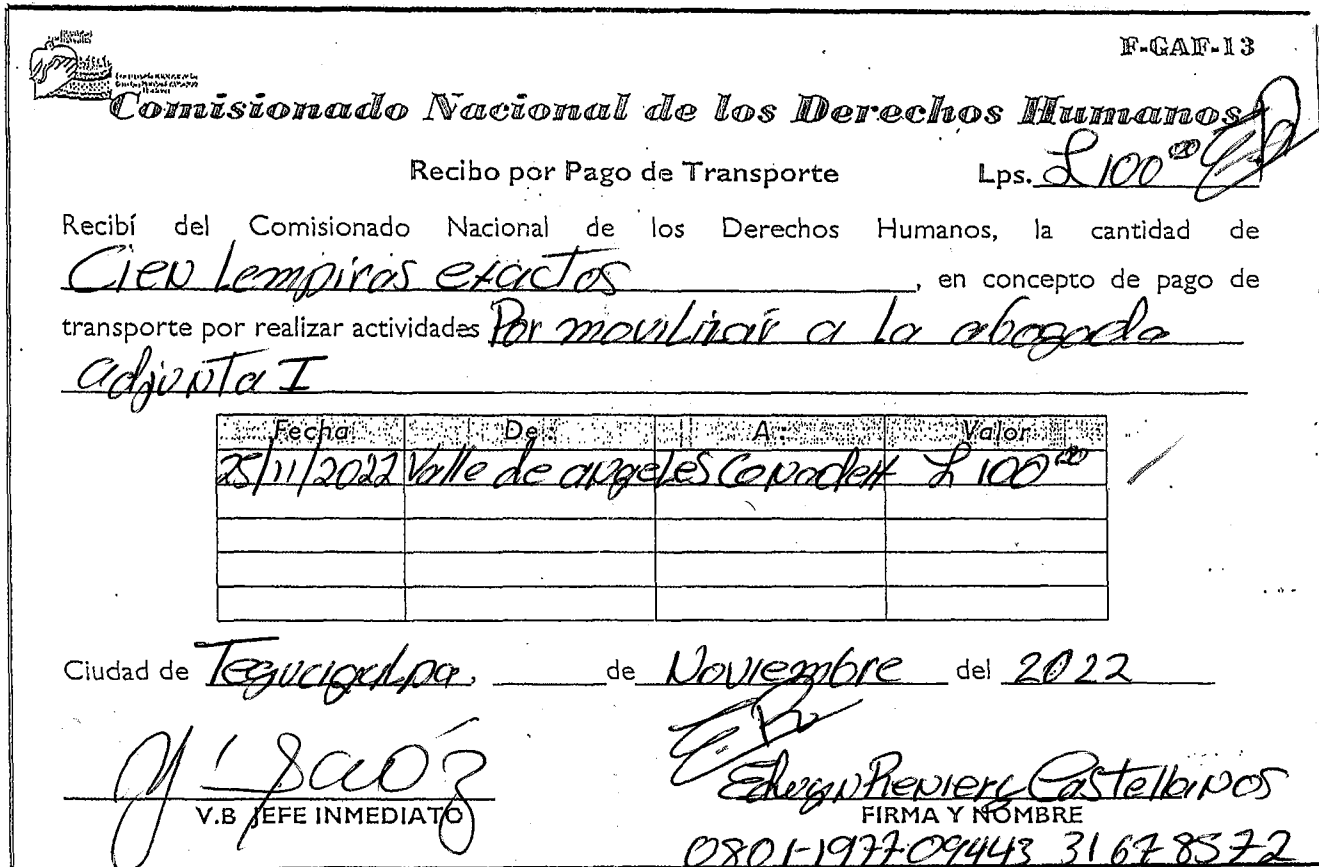 F-GAF-13
Comisionado Nacional de los Derechos Humanos
Recibo por Pago de Transporte Lps. L 100.00
Recibí del Comisionado Nacional de los Derechos Humanos, la cantidad de
Cien Lempiras exactos, en concepto de pago de
transporte por realizar actividades Por movilizar a la abogada
adjunta I
Fecha De: A: Valor
25/11/2022 Valle de angeles Conadeh L 100.00
Ciudad de Tegucigalpa, de Noviembre del 2022
V.B JEFE INMEDIATO
Castellanos
FIRMA Y NOMBRE
0801-1977-09443 31678572